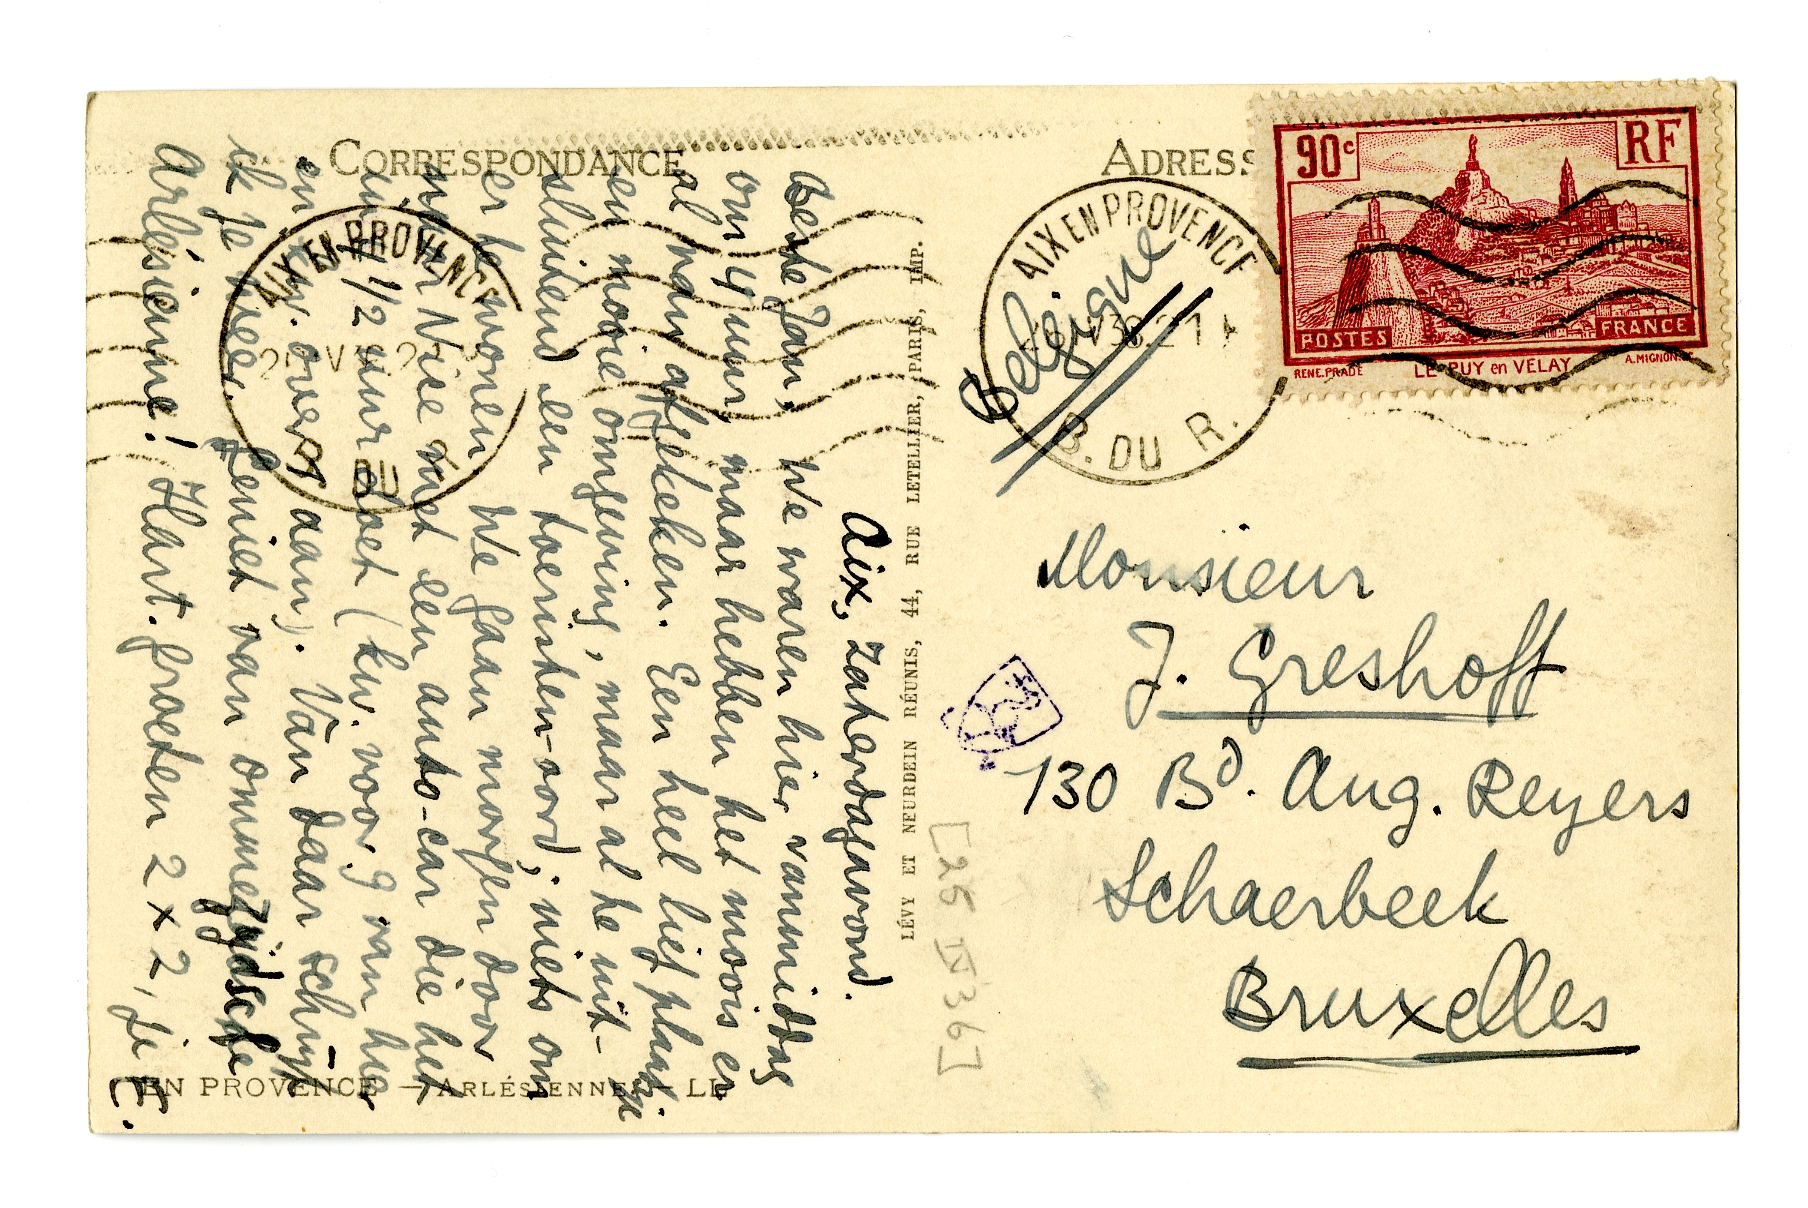 CORRESPONDANCE
Aix, Zaterdagavond.
Beste Jan, We waren hier vanmiddag
om 4 uur, maar hebben het moois er
al van afgekeken. Een heel lief plaatsje
en mooie omgeving, maar al te uit-
sluitend een toeristen-oord; niets om
er te wonen. We gaan morgen door
naar Nice met een auto-car die het
in 4 1/2 uur doet (kw. voor 9 van hier
en kw. over 1 aan). Van daar schrijf
ik je meer. Geniet van ommezijdsche
Arlésienne! Hart. groeten 2 x 2, je
E.
EN PROVENCE — ARLÉSIENNES — LL
AIX EN PROVENCE
B. DU R.
LÉVY ET NEURDEIN RÉUNIS, 44, RUE LETELLIER, PARIS, IMP.
[25 IV 36]
ADRESS
AIX EN PROVENCE
B. DU R.
Belgique
90c
RF
POSTES
FRANCE
RENE.PRADE
LE PUY en VELAY
A.MIGNON.SC
Monsieur
J. Greshoff
130 Bd. Aug. Reyers
Schaerbeek
Bruxelles